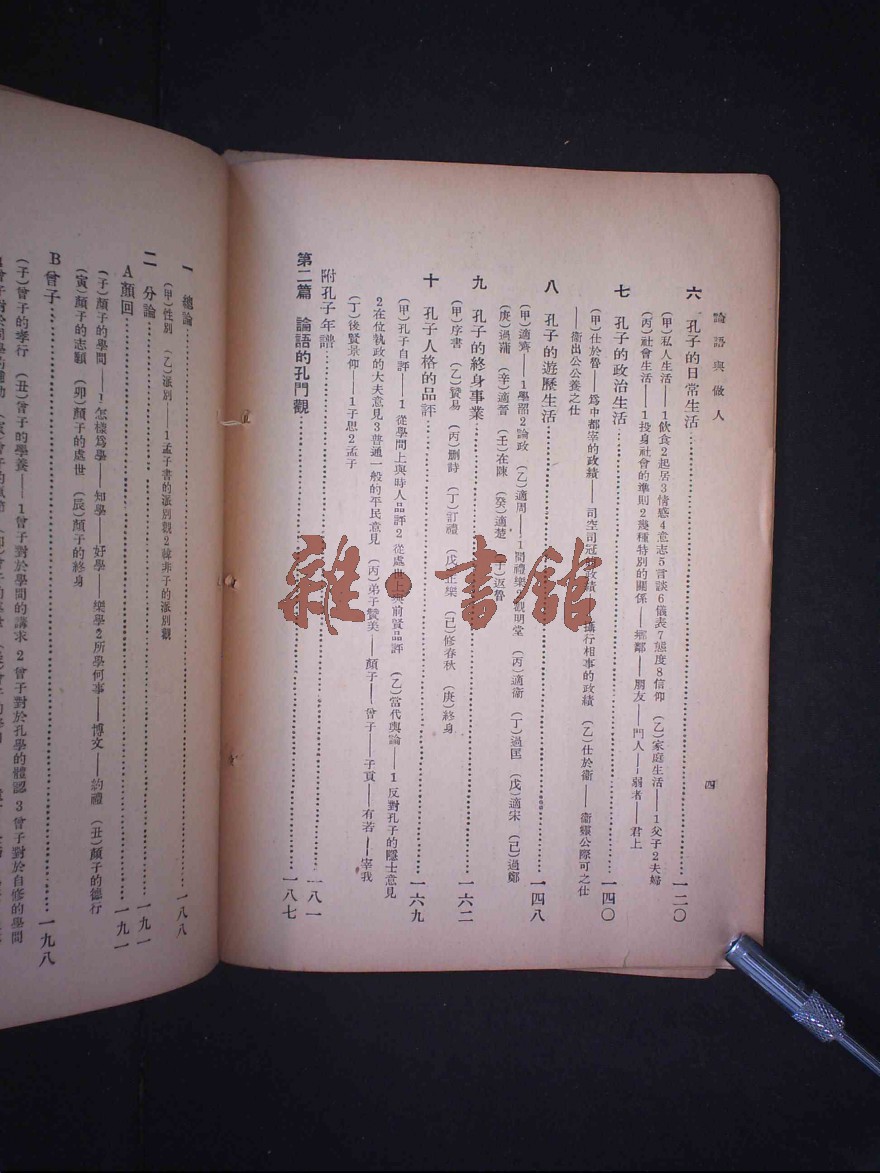 論語與做人
四
六 孔子的日常生活……一二〇
(甲)私人生活——1飲食2起居3情感4意志5言談6儀表7態度8信仰 (乙)家庭生活——1父子2夫婦
(丙)社會生活——1投身社會的準則2幾種特別的關係——鄉鄰——朋友——門人——弱者——君上
七 孔子的政治生活……一四〇
(甲)仕於魯——爲中都宰的政績——司空司冠的政績——攝行相事的政績 (乙)仕於衞——衞靈公際可之仕
——衞出公公養之仕
八 孔子的遊歷生活……一四八
(甲)適齊——1學韶2論政 (乙)適周——1問禮樂2觀明堂 (丙)適衞 (丁)過匡 (戊)適宋 (己)過鄭
(庚)過蒲 (辛)適晉 (壬)在陳 (癸)適楚 (子)返魯
九 孔子的終身事業……一六二
(甲)序書 (乙)贊易 (丙)刪詩 (丁)訂禮 (戊)正樂 (己)修春秋 (庚)終身
十 孔子人格的品評……一六九
(甲)孔子自評——1從學問上與時人品評2從處世上與前賢品評 (乙)當代輿論——1反對孔子的隱士意見
2在位執政的大夫意見3普通一般的平民意見 (丙)弟子贊美——顏子——曾子——子貢——有若——宰我
(丁)後賢景仰——1子思2孟子
附孔子年譜……一八一
第二篇 論語的孔門觀……一八七
一 總論……一八八
(甲)性別 (乙)派別——1孟子書的派別觀2韓非子的派別觀
二 分論……一九一
A顏回……一九一
(子)顏子的學問——1怎樣爲學——知學——好學——樂學2所學何事——博文——約禮 (丑)顏子的德行
(寅)顏子的志願 (卯)顏子的處世 (辰)顏子的終身
B曾子……一九八
(子)曾子的孝行 (丑)曾子的學養——1曾子對於學問的講求 2曾子對於孔學的體認 3曾子對於自修的學問
雜·書館